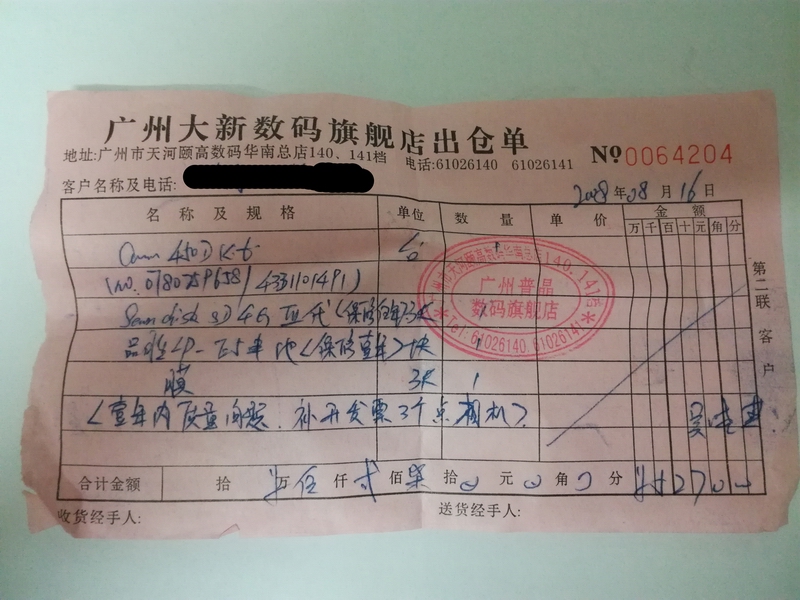 广州大新数码旗舰店出仓单
地址:广州市天河颐高数码华南总店140、141档 电话:61026140 61026141 №0064204
客户名称及电话: 2008年08月16日
名称及规格 单位 数量 单价 金额
万千百十元角分
450D Kit 台 1
(no. 0780259658/4331101491)
Sandisk SD 4G 1
1
膜 张 1
<壹年内质量问题. 补开发票3个点相机>.
合计金额 拾 万伍仟贰佰柒拾0元0角0分 ¥5270
收货经手人: 送货经手人:
第二联 客户
广州普晶
数码旗舰店
Tel:61026140.61026141